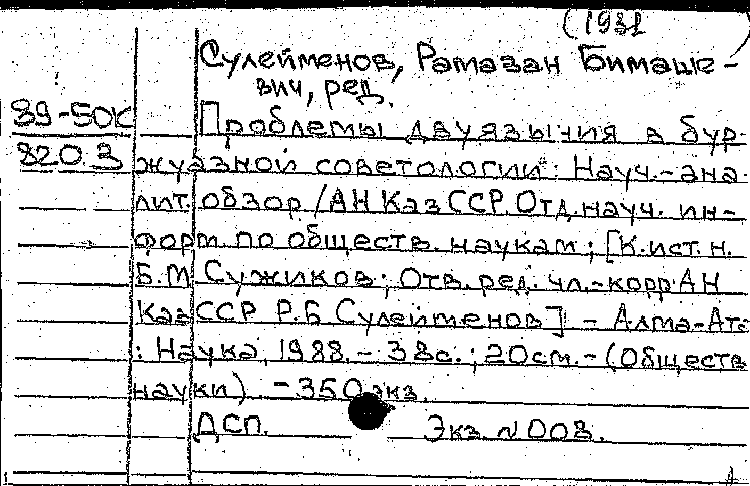 (1931
Сулейменов, Рамазан Бимаше-
вич, ред.
89-50К Проблемы двуязычия в бур-
8203 жуазной советологии: Науч.-ана-
лит. обзор / АН КазССР. Отд. науч. ин-
форм. по обществ. наукам; [К.ист.н.
Б.М Сужиков; Отв. ред. чл.-корр АН
КазССР Р.Б Сулейменов] - Алма-Ата
: Наука, 1988. - 38с.; 20см. - (Обществ
науки). - 350экз.
ДСП. Экз. №008.